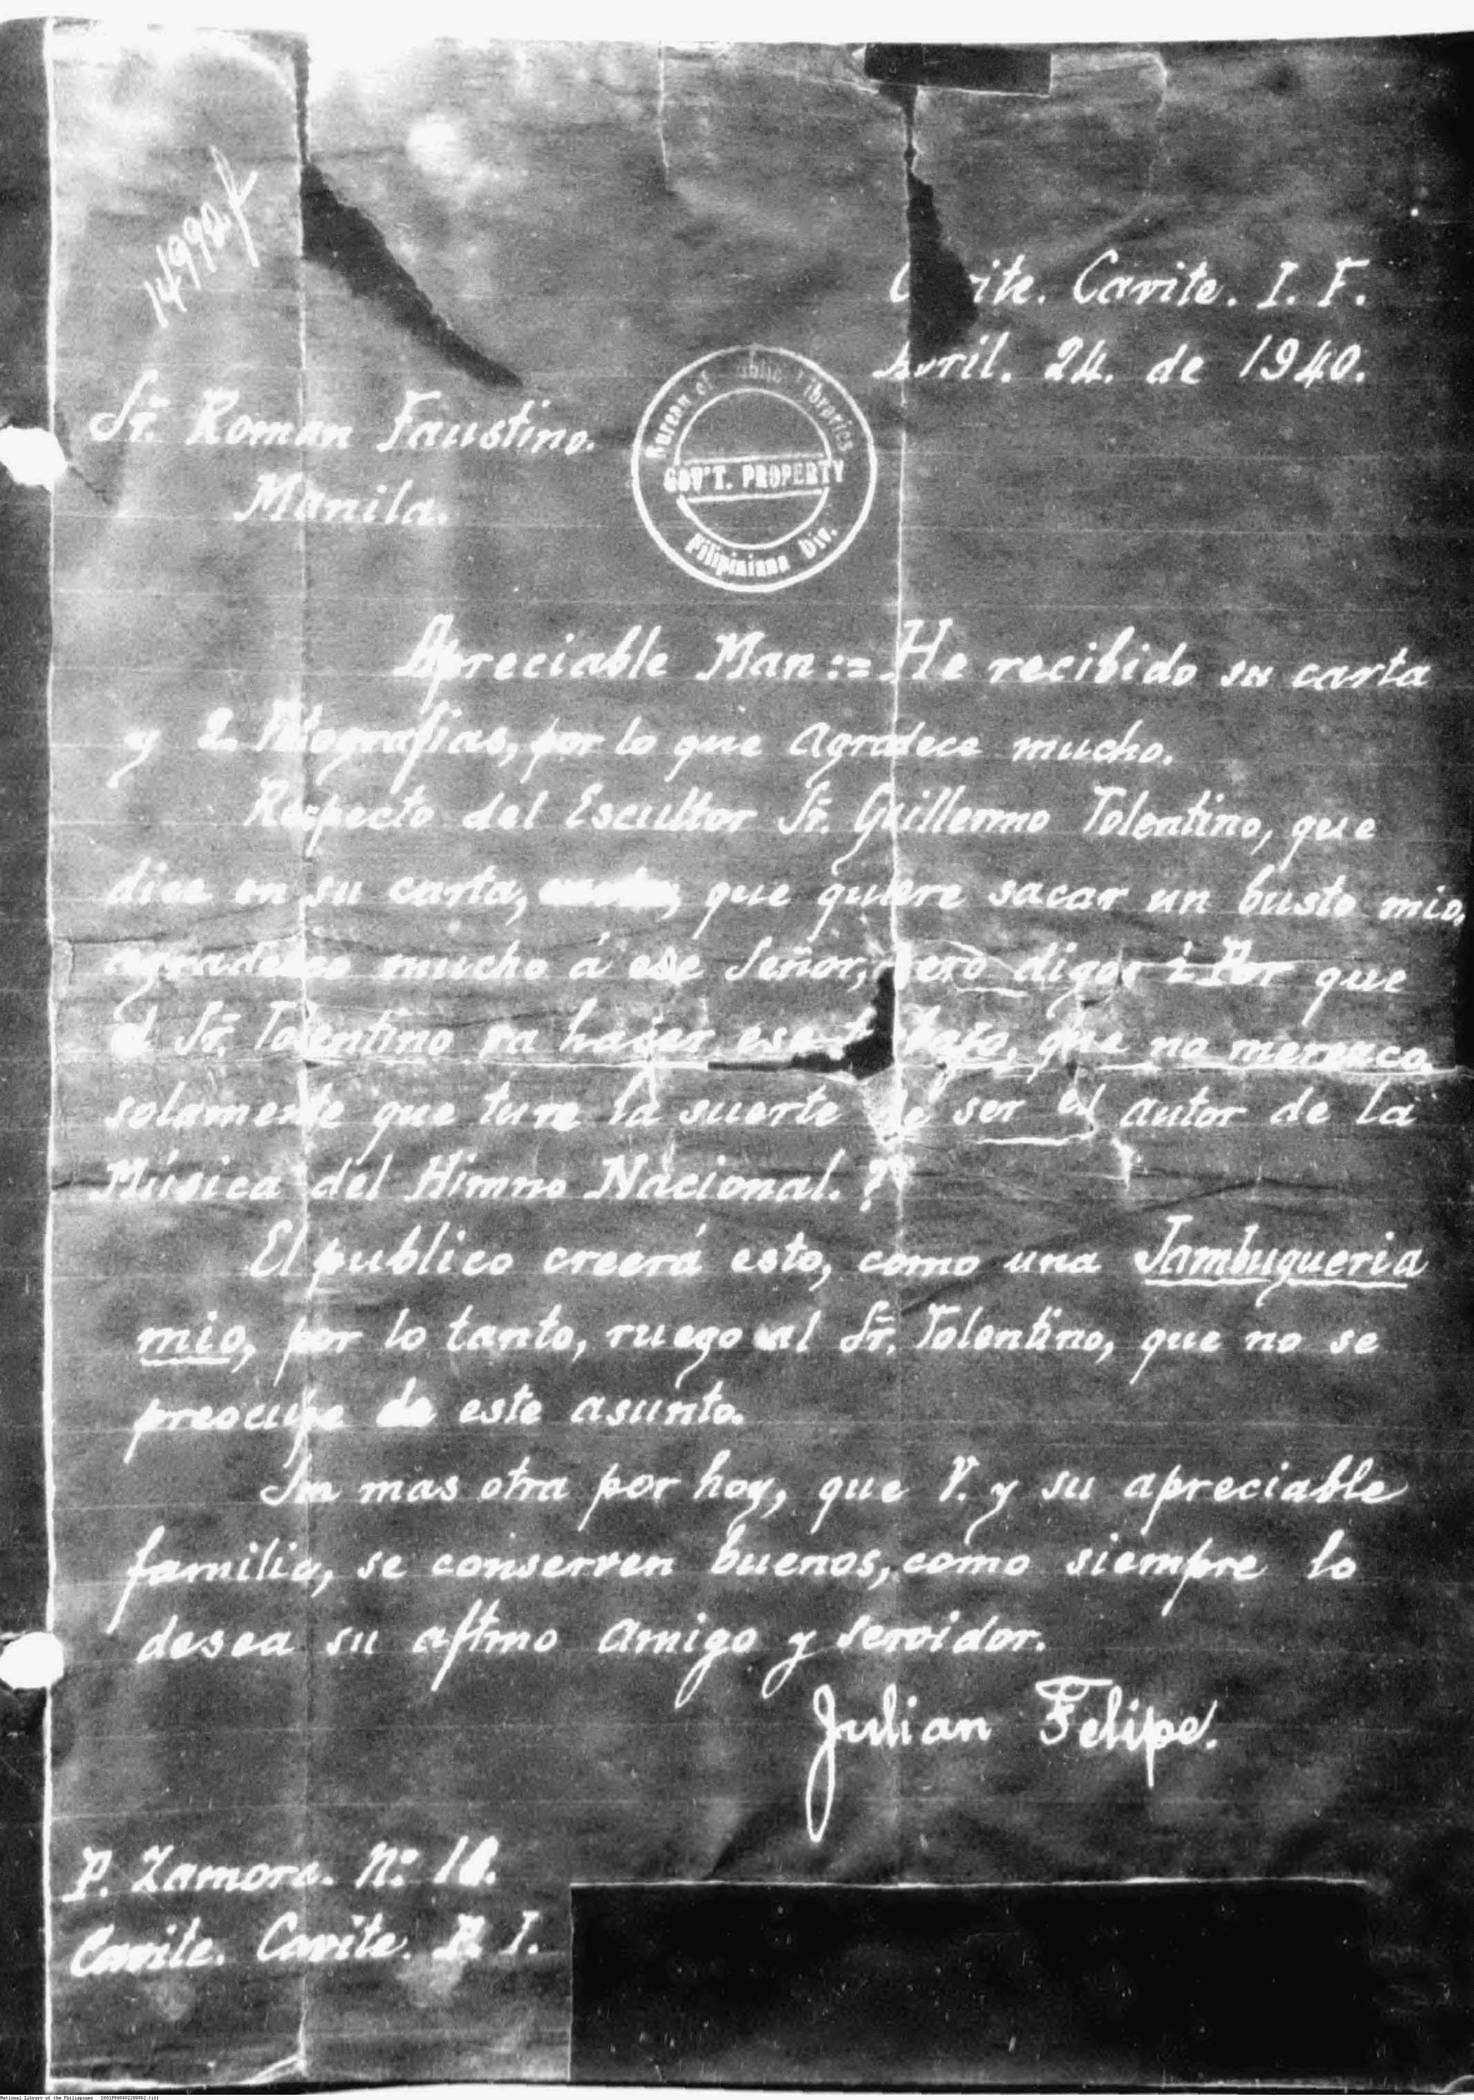 14992
Cavite. Cavite. I. F.
Avril. 24. de 1940.
Sr. Roman Faustino.
Manila.
Bureau of Public Libraries
GOV'T. PROPERTY
Filipiniana Div.
Apreciable Man:= He recibido su carta
y 2. Biografias, por lo que agradece mucho.
Respecto del Escultor Sr. Guillermo Tolentino, que
dice en su carta, que quiere sacar un busto mio,
agradezco mucho á ese Señor, pero digo: ¿Por que
el Sr. Tolentino va hacer ese trabajo, que no merezco
solamente que tuve la suerte de ser el autor de la
Música del Himno Nacional.?
El publico creerá esto, como una Jambugueria
mio, por lo tanto, ruego al Sr. Tolentino, que no se
preocupe de este asunto.
Sin mas otra por hoy, que V. y su apreciable
familia, se conserven buenos, como siempre lo
desea su aftmo amigo y servidor.
Julian Felipe.
P. Zamora. Nº 10.
Cavite. Cavite. P. I.
National Library of the Philippines